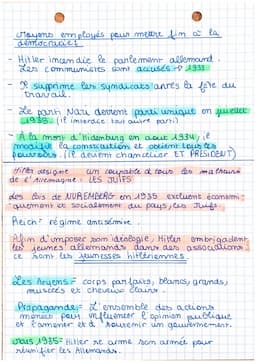 Moyens employés pour mettre fin à la
démocratie :
- Hitler incendie le parlement allemand.
Les communistes sont accusés → 1933
- Il supprime les syndicats après la fête du
travail.
- Le parti Nazi devient parti unique en juillet
1933 (il interdit tout autre parti)
- A la mort d'Hidenburg en aout 1934, il
modifie la constitution et obtient tous les
pouvoirs. (il devient chancelier ET PRÉSIDENT)
Hitler désigne un coupable à tous les malheurs
de l'Allemagne : LES JUIFS
Les lois de NUREMBERG en 1935 excluent économi-
quement et socialement du pays, les Juifs.
Reich : régime antisémite.
Afin d'imposer son idéologie, Hitler embrigadent
les jeunes allemands dans des associations,
ce sont les jeunesses hitlériennes.
Les Aryens : corps parfaits, blancs, grands,
musclés et cheveux clairs.
Propagande : L'ensemble des actions
menées pour influencer l'opinion publique
et l'amener et à soutenir un gouvernement.
1935 : Hitler re arme son armée pour
réunifier les Allemands.